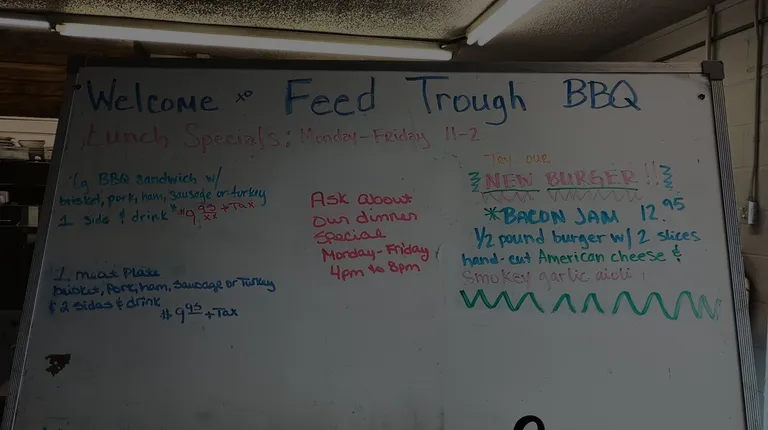 Welcome to Feed Trough BBQ
Lunch Specials: Monday-Friday 11-2
Lg BBQ Sandwich w/
brisket, pork, ham, sausage or turkey
1 side & drink $9.95 + Tax
1 meat Plate
brisket, Pork, ham, sausage or Turkey
& 2 sides & drink
$9.95 + Tax
Ask about
our dinner
Special
Monday-Friday
4pm to 8pm
Try our
NEW BURGER!!
*BACON JAM 12.95
1/2 pound burger w/ 2 slices
hand-cut American cheese &
Smokey garlic aioli.